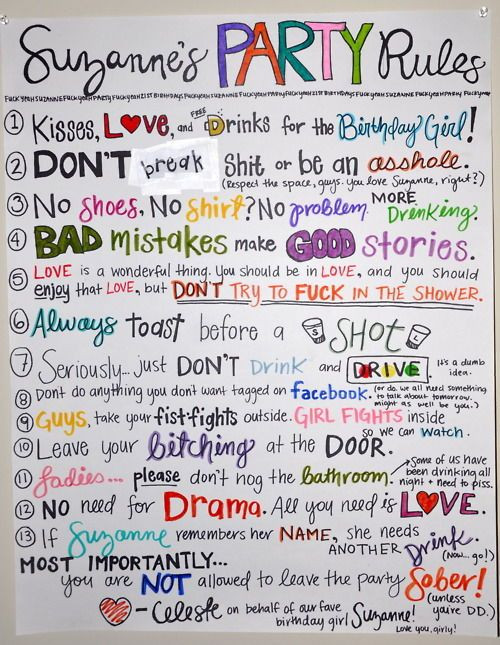 Suzanne's PARTY Rules
FUCK YEAH SUZANNE FUCK YEAH PARTY FUCK YEAH 21ST BIRTHDAYS FUCK YEAH SUZANNE FUCK YEAH PARTY FUCK YEAH 21ST BIRTHDAYS FUCK YEAH SUZANNE FUCK YEAH PARTY
① Kisses, L♥ve, and FREE Drinks for the Birthday Girl!
② DON'T break shit or be an asshole.
(Respect the space, guys. you love Suzanne, right?)
③ No shoes, No shirt? No problem. MORE Drinking.
④ BAD mistakes make GOOD stories.
⑤ LOVE is a wonderful thing. You should be in LOVE, and you should
enjoy that LOVE, but DON'T TRY TO FUCK IN THE SHOWER.
⑥ Always toast before a SHOT
⑦ Seriously... just DON'T Drink and DRIVE. It's a dumb idea.
⑧ Dont do anything you don't want tagged on facebook. (or do. we all need something to talk about tomorrow. might as well be you.)
⑨ GUYS, take your fist-fights outside. GIRL FIGHTS inside
so we can watch.
⑩ Leave your bitching at the DOOR.
⑪ Ladies... please don't hog the bathroom. Some of us have been drinking all night + need to piss.
⑫ NO need for Drama. All you need is L♥VE.
⑬ If Suzanne remembers her NAME, she needs
ANOTHER Drink. (Now... go!)
MOST IMPORTANTLY...
you are NOT allowed to leave the party Sober!
(unless you're DD.)
♥ - Celeste on behalf of our fave birthday girl Suzanne!
Love you, girly!